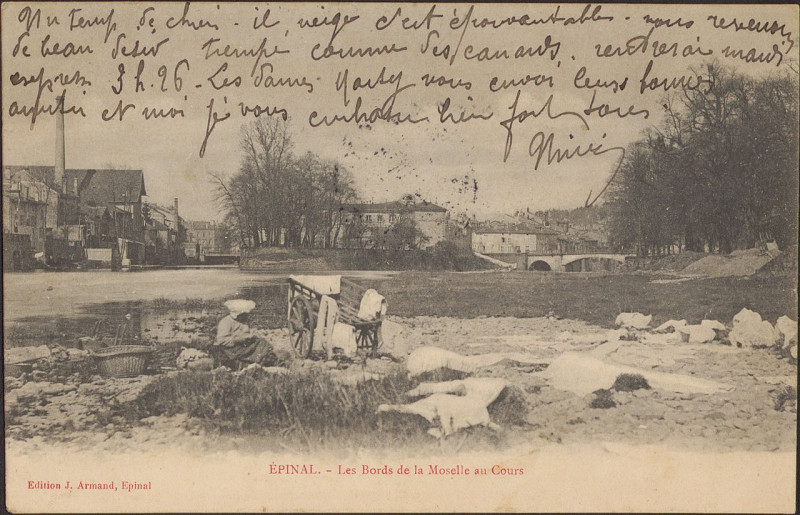 Un temp de chien - il neige c'est épouvantable - nous revenons
de beau désir trempé comme des canards, rentrerai mardi
exprets 3h.26 - Les dames vous envoi leurs bonnes
amitié et moi je vous embrasse bien fort tores
ÉPINAL. - Les Bords de la Moselle au Cours
Edition J. Armand, Epinal